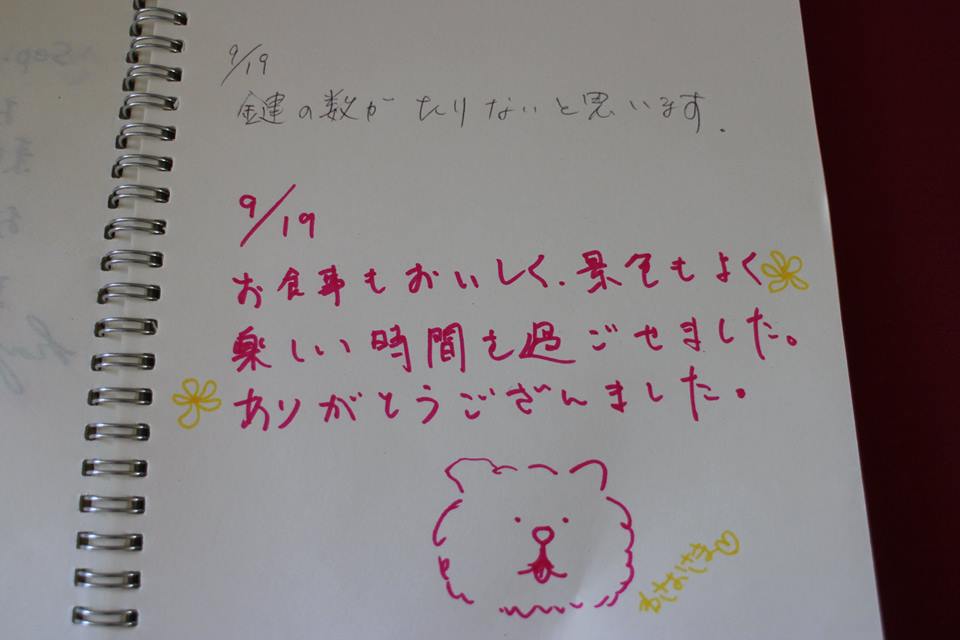 9/19
鍵の数がたりないと思います.
9/19
お食事もおいしく、景色もよく
楽しい時間を過ごせました。
ありがとうござんました。
わさおさま♡